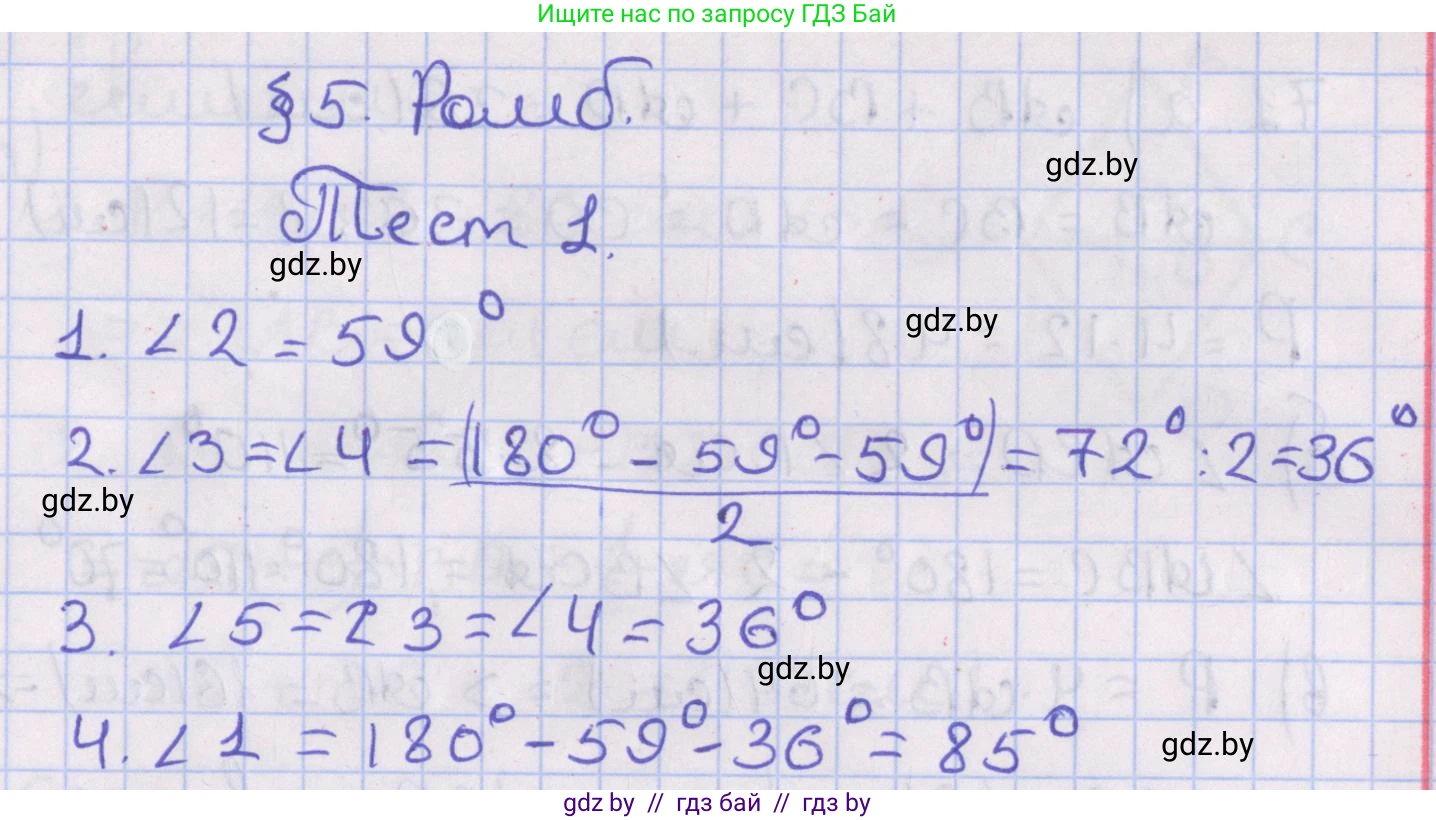 Ищите нас по запросу ГДЗ Бай
§ 5. Ромб.
gdz.by
Тест 1.
gdz.by
1. ∠2 = 59°
gdz.by
2. ∠3 = ∠4 = (180° - 59° - 59°)/2 = 72° : 2 = 36°
gdz.by
3. ∠5 = ∠3 = ∠4 = 36°
gdz.by
4. ∠1 = 180° - 59° - 36° = 85°
gdz.by
gdz by // гдз бай // гдз by